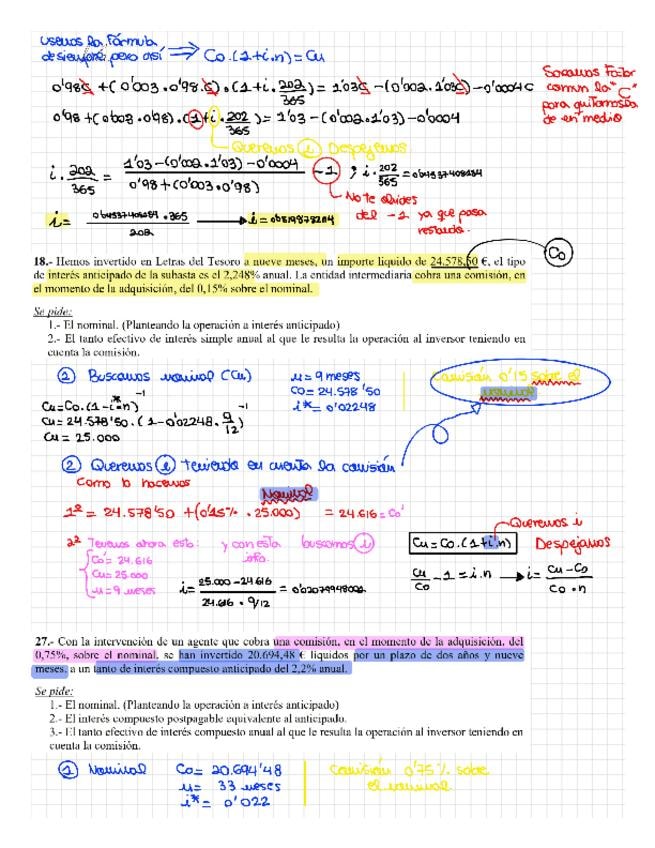 usemos la fórmula
de siempre pero así → Co.(1+i.n) = Cn
0'98C + (0'003.0'98.C).(1+i.202/365) = 1'03C - (0'002.1'03C) - 0'0004C
Sacamos Factor
común la "C"
para quitarnosla
de en medio
0'98 + (0'003.0'98).(1+i.202/365) = 1'03 - (0'002.1'03) - 0'0004
Queremos i Despejamos
i.202/365 = 1'03-(0'002.1'03)-0'0004 / 0'98+(0'003.0'98) -1 ; i.202/365 =
No te olvides
del -1 ya que pasa
restando.
i = .365 / 202 → i =
18.- Hemos invertido en Letras del Tesoro a nueve meses, un importe líquido de 24.578,50 €, el tipo
Co
de interés anticipado de la subasta es el 2,248% anual. La entidad intermediaria cobra una comisión, en
el momento de la adquisición, del 0,15% sobre el nominal.
Se pide:
1.- El nominal. (Planteando la operación a interés anticipado)
2.- El tanto efectivo de interés simple anual al que le resulta la operación al inversor teniendo en
cuenta la comisión.
1 Buscamos nominal (Cn)
n = 9 meses
Co = 24.578'50
i* = 0'02248
Comisión 0'15 sobre el
nominal
Cn = Co.(1-i*.n)-1
Cn = 24.578'50.(1-0'02248.9/12)-1
Cn = 25.000
2 Queremos i teniendo en cuenta la comisión
Como lo hacemos
Nominal
1º = 24.578'50 + (0'15%.25.000) = 24.616 = Co'
2º Tenemos ahora esto:
Co' = 24.616
Cn = 25.000
n = 9 meses
y con esta
info.
buscamos i
Cn = Co.(1+i.n)
Queremos i
Despejamos
i = 25.000-24.616 / 24.616.9/12 =
Cn/Co - 1 = i.n → i = Cn-Co / Co.n
27.- Con la intervención de un agente que cobra una comisión, en el momento de la adquisición, del
0,75%, sobre el nominal, se han invertido 20.694,48 € líquidos por un plazo de dos años y nueve
meses, a un tanto de interés compuesto anticipado del 2,2% anual.
Se pide:
1.- El nominal. (Planteando la operación a interés anticipado)
2.- El interés compuesto postpagable equivalente al anticipado.
3.- El tanto efectivo de interés compuesto anual al que le resulta la operación al inversor teniendo en
cuenta la comisión.
1 Nominal
Co = 20.694'48
n = 33 meses
i* = 0'022
Comisión 0'75% sobre
el nominal.